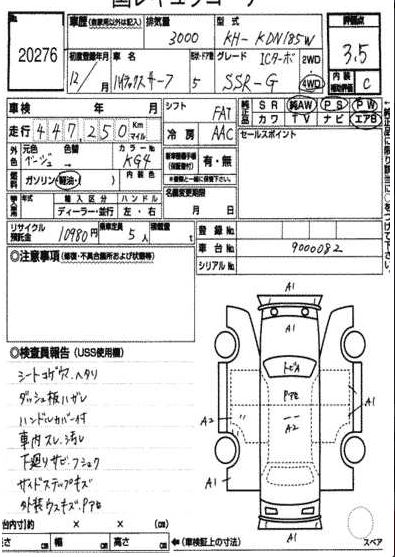 車歴 (自家用以外は記入)
排気量
型式
評価点
20276
3000
KH-KDN185W
3.5
初度登録年月
車名
形状・ドア数
グレード
ICターボ
2WD
4WD
12/
月
ハイラックスサーフ
5
SSR-G
内装
補助評価
C
車検 年 月
シフト
FAT
純正品
SR
純AW
PS
PW
カワ
TV
ナビ
エアB
走行 447,250 Km
マイル
冷房
AAC
セールスポイント
外色
元色
色替
カラーNo
ベージュ
→
KG4
新車整備手帳
(保証書付)
有・無
燃料
ガソリン・軽油・( )
内装色
名義変更期限
月 日
年式
輸入区分
ハンドル
ディーラー・並行
左・右
リサイクル
預託金
10980円
乗車定員
5人
積載量
t
登録No
車台No
9000082
シリアルNo
◎注意事項 (修復・不具合箇所および状態等)
◎検査員報告 (USS使用欄)
シートコゲ穴、ヘタリ
ダッシュ板ハガレ
ハンドルカバー付
車内スレ、汚レ
下廻りサビ、フショク
サイドステップキズ
外装ウスキズ、Pアセ
A1
A1
トビA
Pアセ
A2
A2
A1
A1
A1
A1
台内寸)約 × × (cm)
cm
幅
cm
高さ
cm
←(車検証上の寸法)
スペア